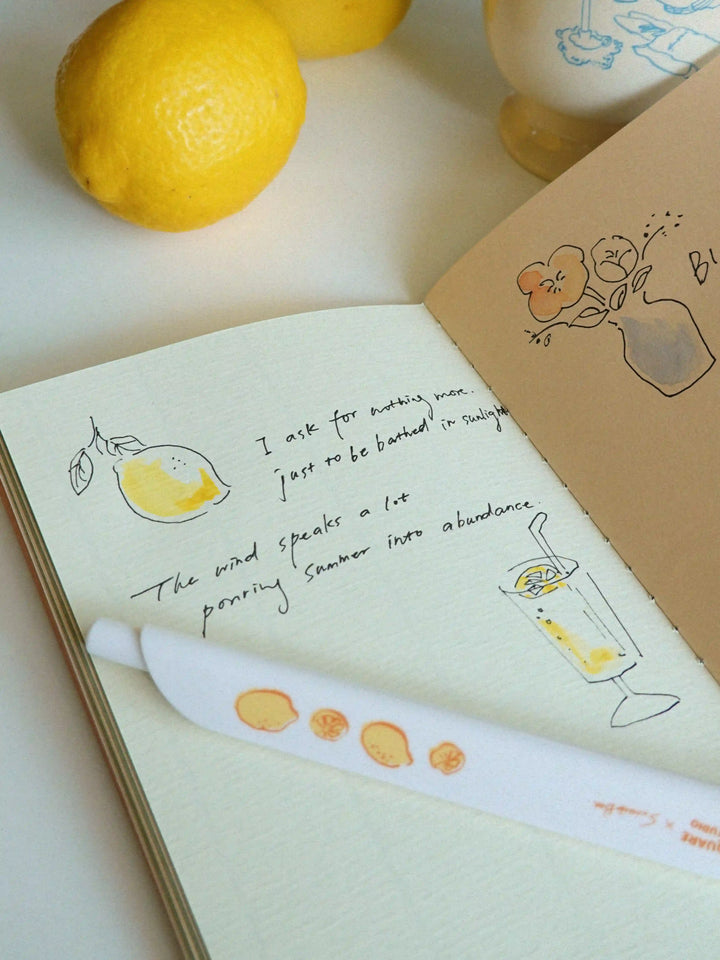 I ask for nothing more.
just to be bathed in sunlight
The wind speaks a lot
pouring summer into abundance.
BI
QUARE
TUDIO
×